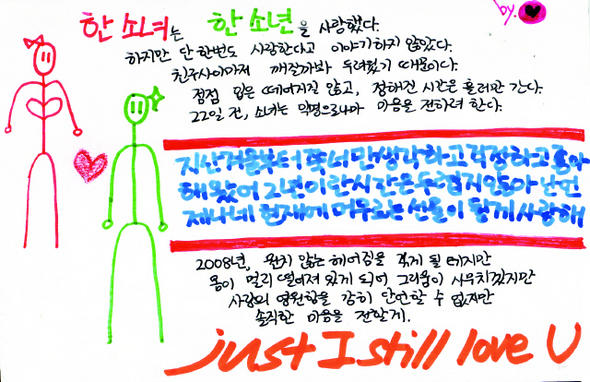 by.
한 소녀는 한 소년을 사랑했다.
하지만 단 한번도 사랑한다고 이야기하지 않았다.
친구사이마저 깨질까봐 두려웠기 때문이다.
점점 입은 떼어지질 않고, 정해진 시간은 흘러만 간다.
22일 전, 소녀는 익명으로나마 마음을 전하려 한다.
지난겨울부터 쭉 너만 생각하고 걱정하고 좋아
해왔어 2년이란 시간은 두렵지 않아 난 언
제나 네 현재에 머무르는 선물이 될게 사랑해
2008년, 원치 않는 헤어짐을 겪게 될 테지만
몸이 멀리 떨어져 있게 되어 그리움이 사무치겠지만
사랑의 영원함을 감히 단언할 수 없지만
솔직한 마음을 전할게.
just I still love U